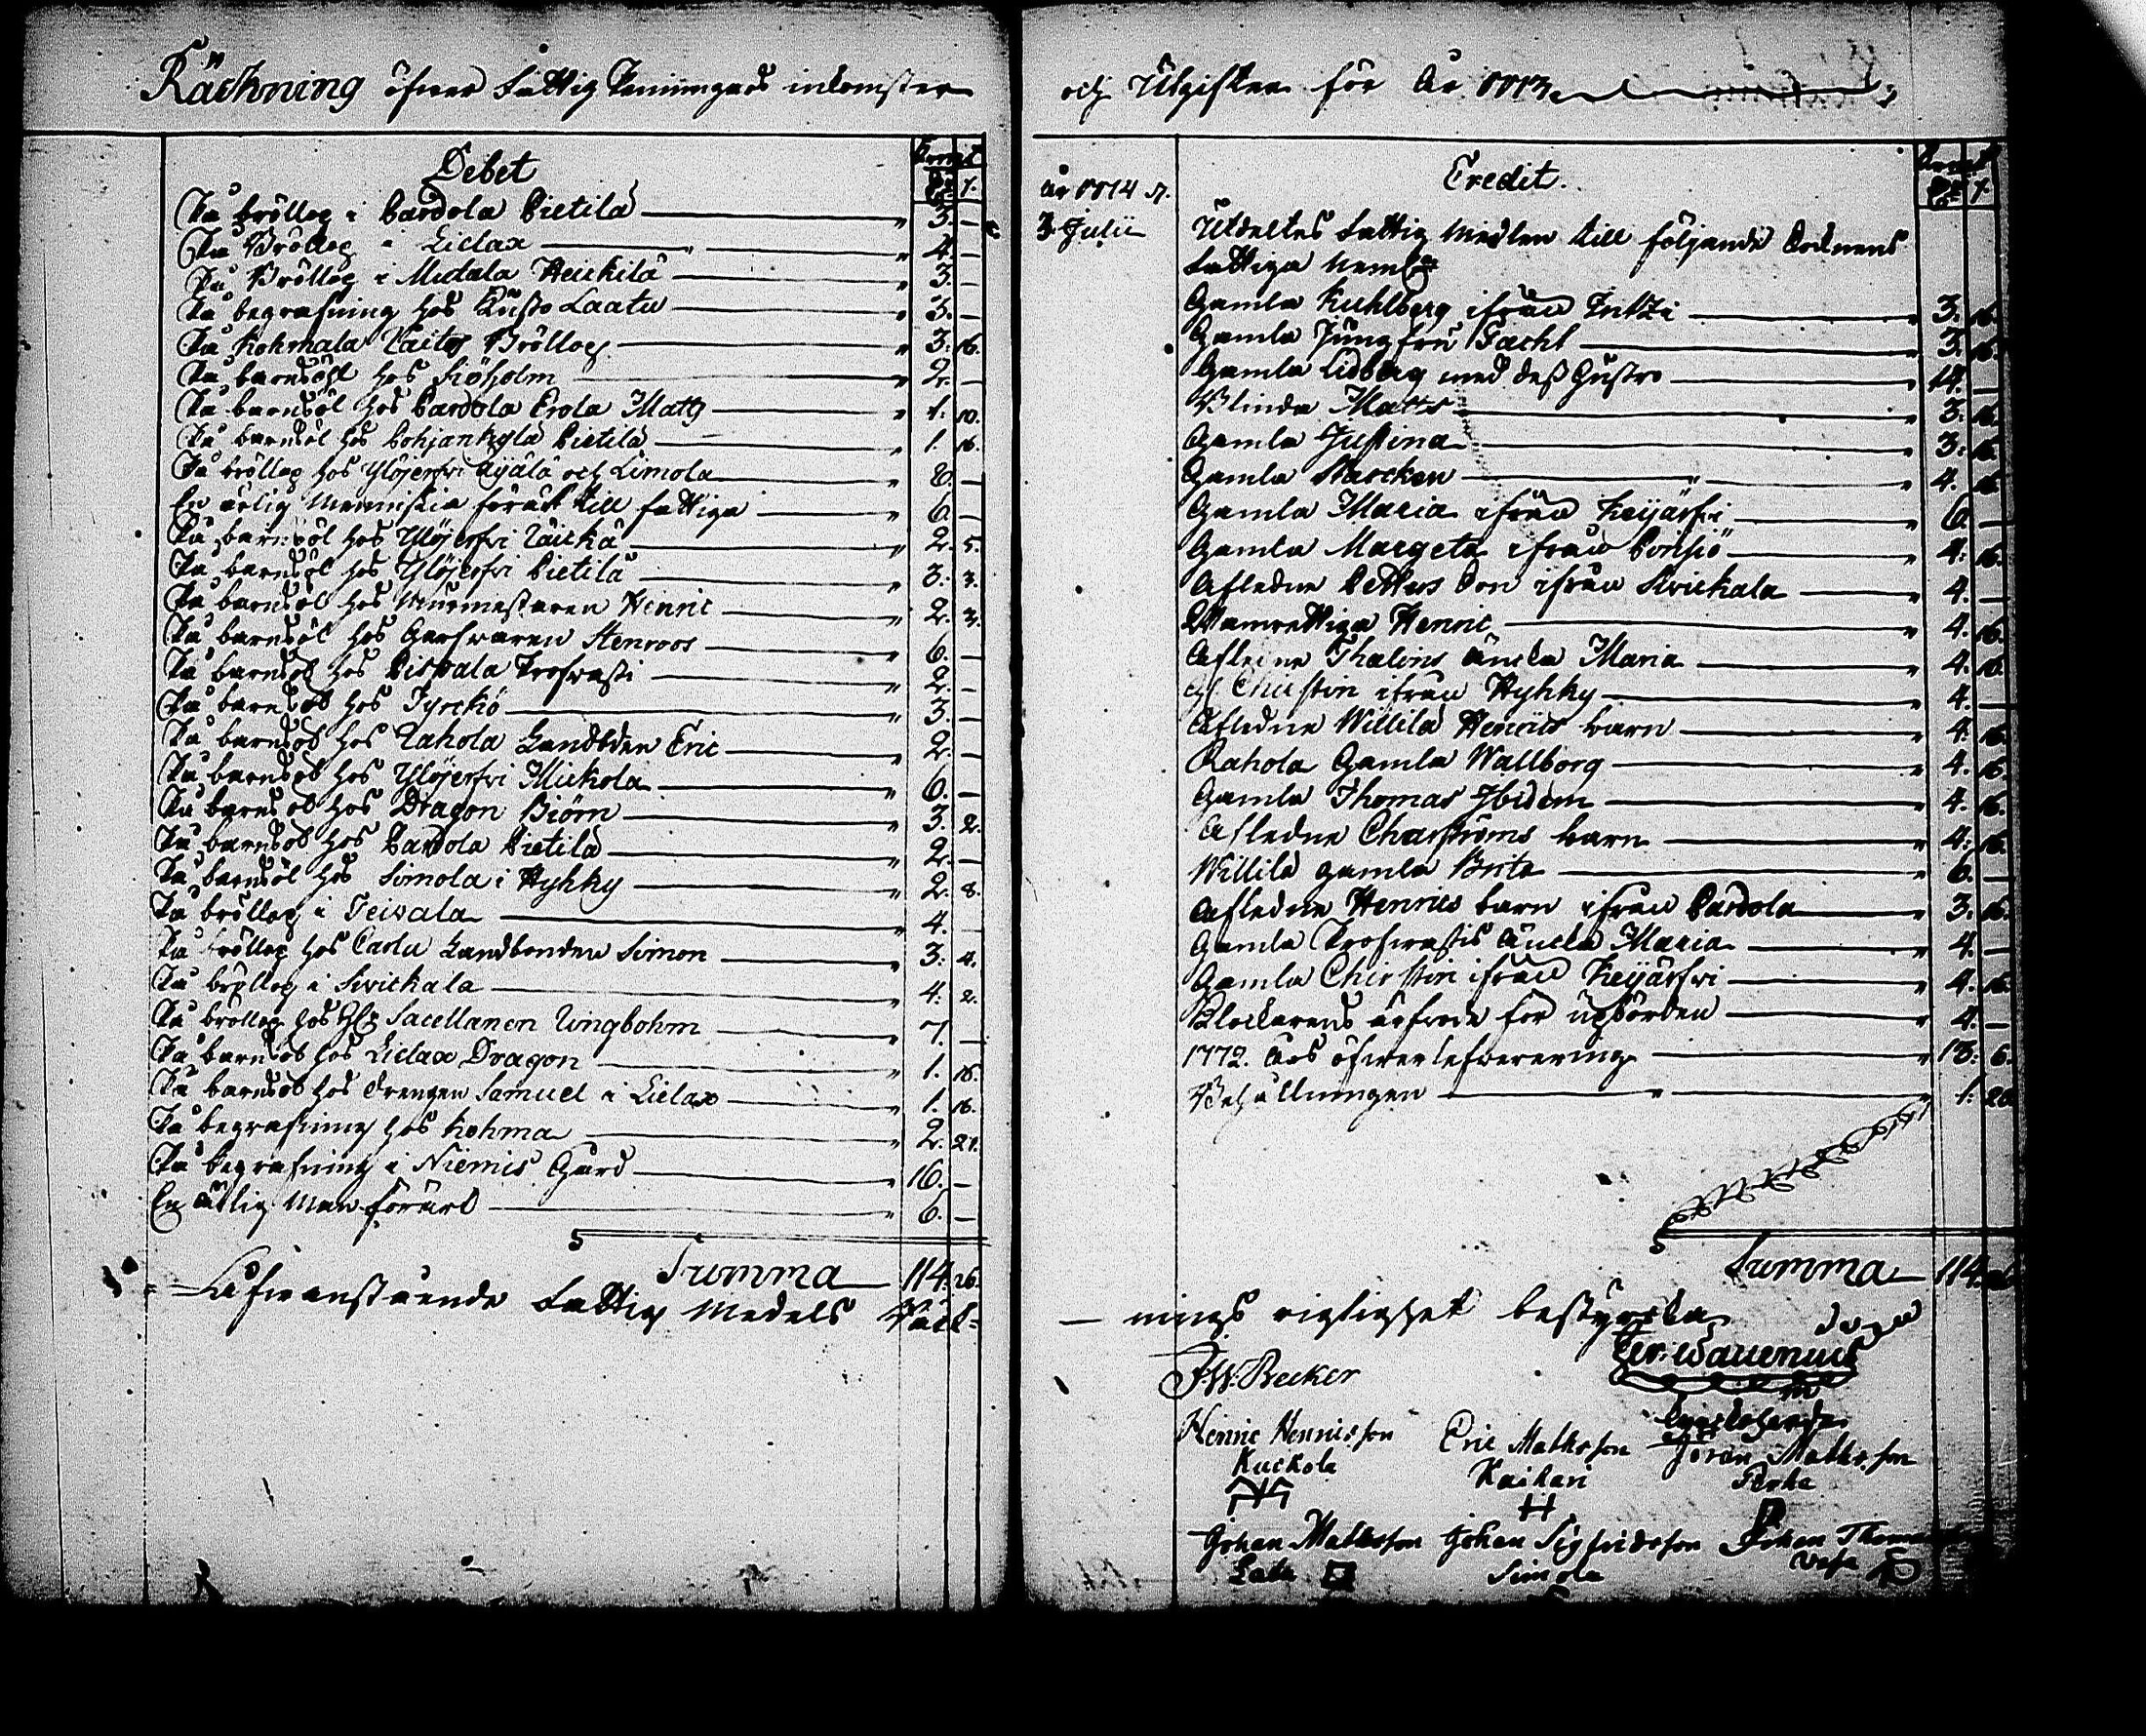 Räckning öfwer Fattig Penningars inkomster
Debet
På bröllop i Pardola Pietilä 3. —
På Bröllop i Lielax 4. —
På Bröllop i Mudala Heickilä 3. —
På begrafning hos Kusto Laatu 3. —
På Kohmala Bröllop 3. 16.
På barnsöhl hos Siöholm 2. —
På barnsöl hos Pardola Erola Matts 1. 10.
På barnsöl hos Pohjankylä Pietilä 1. 16.
På bröllop hos Ylöjerfwi Äijälä och Simola —
En ärlig Menniskia förärt till fattiga 6. —
På barnsöl hos Ylöjerfwi Räickä 2. 5.
På barnsöl hos Ylöjerfwi Pietilä 3. 3.
På barnsöl hos Murmestaren Henric 2. 3.
På barnsöl hos Garfwaren Stenroos 6. —
På barnsöl hos Pispala Profwasti 2. —
På barnsöl hos Tyrckö 3. —
På barnsöl hos Rahola Landbden Eric 2. —
På barnsöl hos Ylöjerfwi Mickola 6. —
På barnsöl hos Dragon Biörn 3. 2.
På barnsöl hos Pardola Pietilä 2. —
På barnsöl hos Simola i Hyhky 2. 8.
På bröllop i Teiwala 4. —
På bröllop hos Carlu Landbonden Simon 3. 4.
På bröllop i Siwickala 4. 2.
På bröllop hos Sacellanen Ringbohm 7. —
På barnsöl hos Lielax Dragon 1. 16.
På barnsöl hos drengen Samuel i Lielax 1. 16.
På begrafning hos Kohma 2. 21.
På begrafning i Niemis Gård 10. —
En ärlig Man förärt 6. —
Summa 114. 26.
Ofwanstående Fattig Medels Räck=
och Utgifter för År 1773
År 1774 d.
3 Julii
Credit.
Utdeltes Fattig Medlen till följande Socknens
Fattiga neml:
Gamla Kuhlberg ifrån 3. 16.
Gamla Jungfru Facht 3. 16.
Gamla Lidberg med dess Hustro 14. —
Blinda Matts 3. 16.
Gamla Justina 3. 16.
Gamla Starcken 4. 16
Gamla Maria ifrån Keijärfwi 6. —
Gamla Margeta ifrån Poihiö 4. 16.
Afledne Petters Son ifrån Siwickala 4. —
Wanwettiga Henric 4. 16.
Afledne Thalins Äncka Maria 4. 16.
Gl. Chirstin ifrån Hyhky 4. —
Afledne Willilä Henrics barn 4. 16.
Rahola Gamla Wallborg 4. 16.
Gamla Thomas Ibidem 4. 16.
Afledne Charströms barn 4. 16.
Willilä gamla Brita 6. —
Afledne Henrics barn ifrån Pardola 3. 16.
Gamla Profwastis Äncka Maria 4. —
Gamla Chirstin ifrån Keijärfwi 4. 16.
Klockarens arfwode för upbörden 4. —
1772. Års öfwerlefwerering 13. 6.
Behållningen 1. 20
Summa 114. 26
— nings rigtighet bestyrka
J. W. Becker
Henric Henricsson Eric Mathsson Jöran Mathsson
Kuckola Kaikari Perko
Johan Mathsson Johan Sigfridsson Johan
Latu Simola